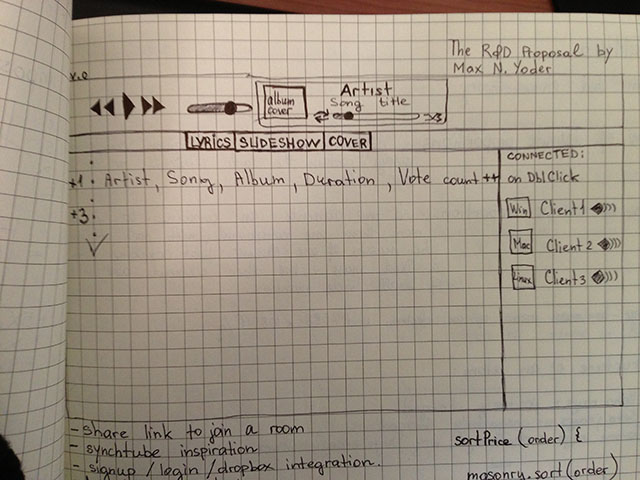 The R&D Proposal by
Max N. Yoder
album
cover
Artist
Song title
LYRICS SLIDESHOW COVER
+1 Artist, Song, Album, Duration, Vote count ++ on DblClick
+3
CONNECTED:
Win Client 1
Mac Client 2
Linux Client 3
- Share link to join a room
- synchtube inspiration
- signup / login / dropbox integration.
sortPrice (order) {
masonry.sort (order)